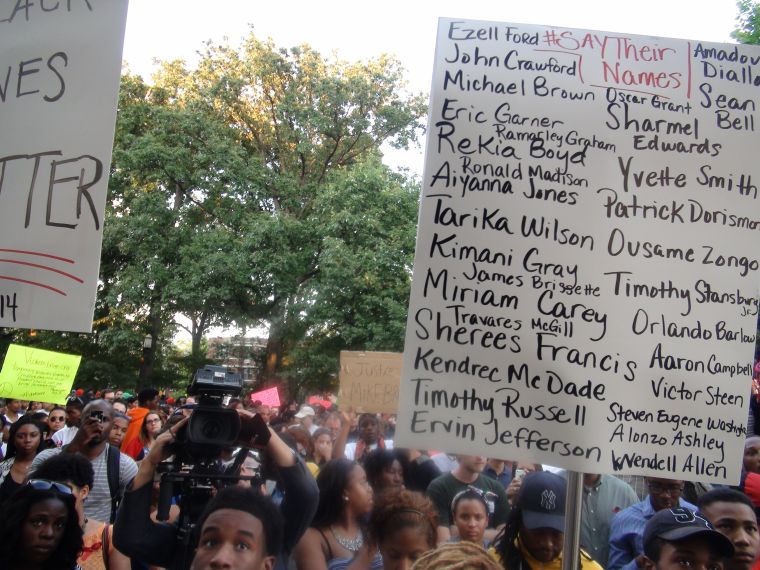 ACK
VES
TTER
14
Ezell Ford #SAYTheir Names
John Crawford
Michael Brown Oscar Grant
Eric Garner
Ramarley Graham
Rekia Boyd
Ronald Madison
Aiyanna Jones
Tarika Wilson
Kimani Gray
James Brissette
Miriam Carey
Travares McGill
Sherees Francis
Kendrec McDade
Timothy Russell
Ervin Jefferson
Amadou
Diallo
Sean
Bell
Sharmel
Edwards
Yvette Smith
Patrick Dorismon
Ousame Zongo
Timothy Stansbury
Jr.
Orlando Barlow
Aaron Campbell
Victor Steen
Steven Eugene Washigt
Alonzo Ashley
Wendell Allen
Justice
MIKE B
NY